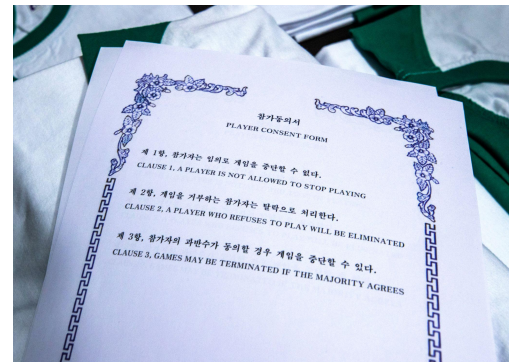 참가동의서
PLAYER CONSENT FORM
제 1항, 참가자는 임의로 게임을 중단할 수 없다.
CLAUSE 1, A PLAYER IS NOT ALLOWED TO STOP PLAYING
제 2항, 게임을 거부하는 참가자는 탈락으로 처리한다.
CLAUSE 2, A PLAYER WHO REFUSES TO PLAY WILL BE ELIMINATED
제 3항, 참가자의 과반수가 동의할 경우 게임을 중단할 수 있다.
CLAUSE 3, GAMES MAY BE TERMINATED IF THE MAJORITY AGREES